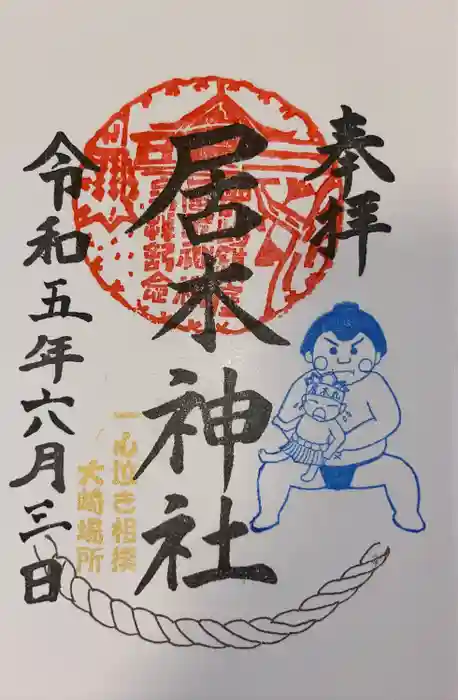 奉拝
居木神社
一心泣き相撲
大崎場所
令和五年六月三日